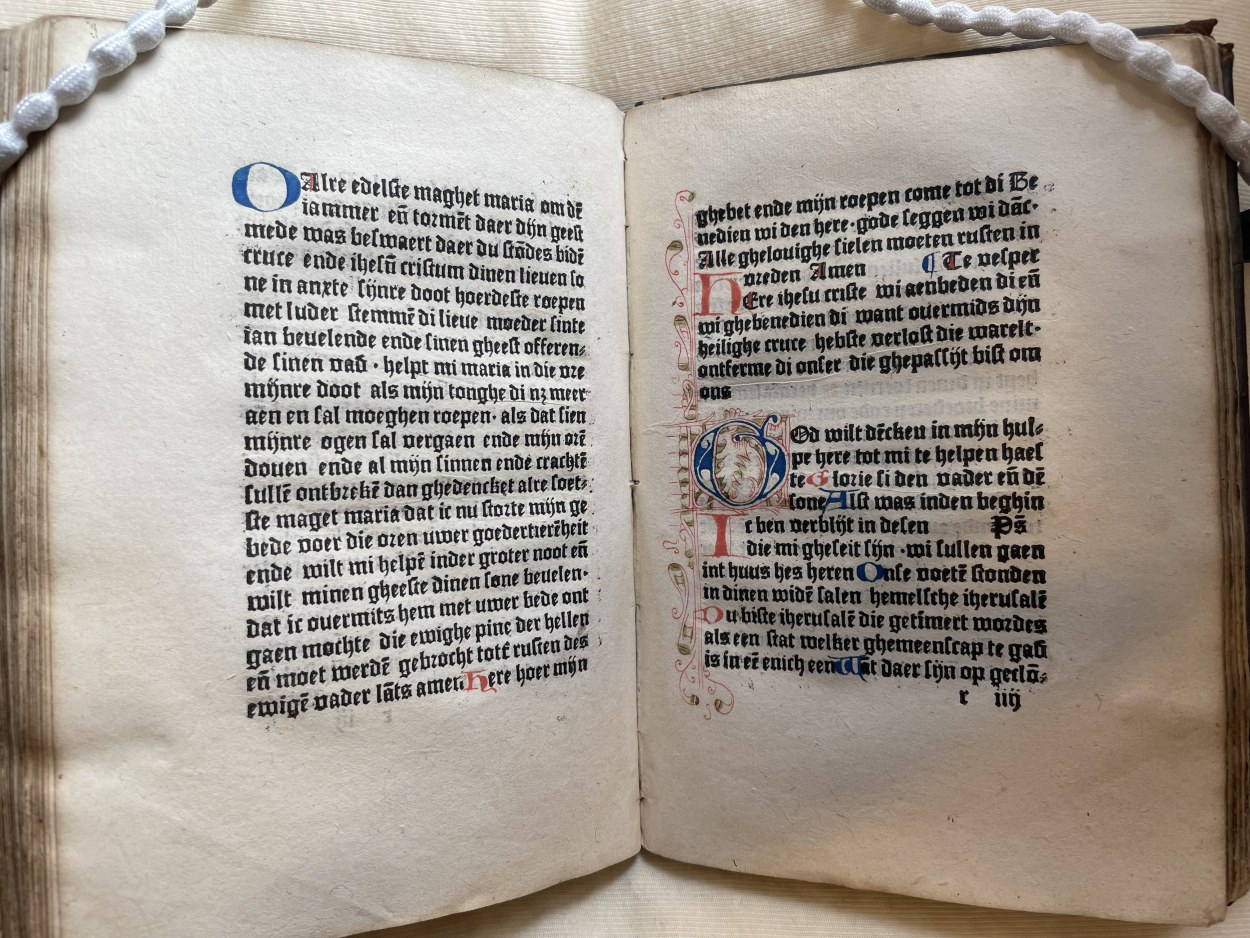 O Alre edelste maghet maria om dē
iammer en̄ tormēt daer dijn geest
mede was beswaert daer du stōdes bidē
cruce ende ihesū cristum dinen lieuen so
ne in anxte sijnre doot hoerdeste roepen
met luder stemmē di lieue moeder sinte
ian beuelende ende sinen gheest offeren⸗
de sinen vad̄ · helpt mi maria in die vre
mijnre doot als mijn tonghe di nz meer
aen en sal moeghen roepen· als dat sien
mijnre ogen sal vergaen ende mijn orē
douen ende al mijn sinnen ende crachtē
sullē ontbrekē dan ghedencket alre soet⸗
ste maget maria dat ic nu storte mijn ge
bede voer die oren uwer goedertierēheit
ende wilt mi helpē inder groter noot en̄
wilt minen gheeste dinen sone beuelen·
dat ic ouermits hem met uwer bede ont
gaen mochte die ewighe pine der hellen
en̄ moet werdē gebrocht totē rusten des
ewigē vader lāts amen. Here hoer mijn
ghebet ende mijn roepen come tot di Be
nedien wi den here· gode seggen wi dāc·
Alle ghelouighe sielen moeten rusten in
vreden Amen ⸿ Te vesper
hEre ihesu criste wi aenbeden di en̄
wi ghebenedien di want ouermids dijn
heilighe cruce hebste verlost die warelt·
ontferme di onser die ghepassijt bist om
ons
GOd wilt dēcken in mijn hul⸗
pe here tot mi te helpen haest
te Glorie si den vader en̄ dē
sone Alst was inden beghin
Ic ben verblijt in desen Ps̄
die mi gheseit sijn ·wi sullen gaen
int huus hes heren Onse voetē stonden
in dinen widē salen hemelsche iherusalē
Du biste iherusalē die getimert wordes
als een stat welker ghemeenscap te gad̄
is in eē enich een Wāt daer sijn op geclō⸗
r iiij